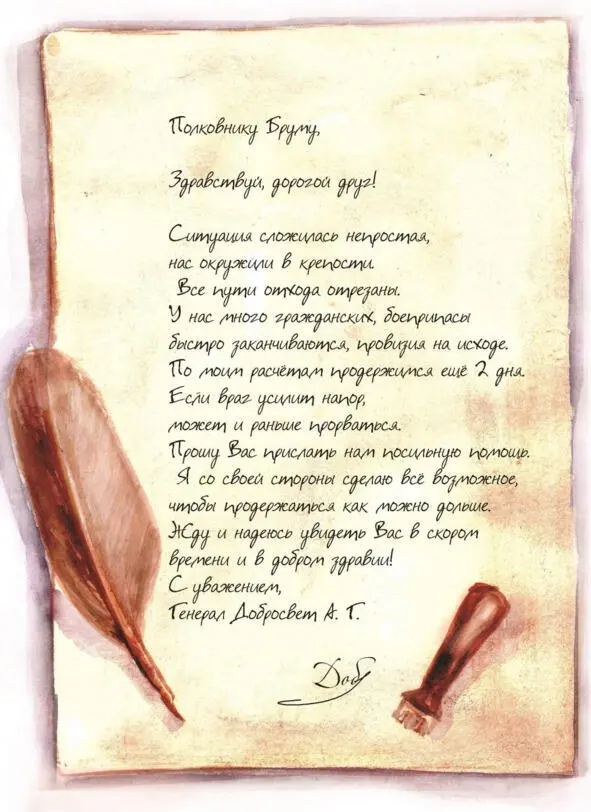 Полковнику Бруму,
Здравствуй, дорогой друг!
Ситуация сложилась непростая,
нас окружили в крепости.
Все пути отхода отрезаны.
У нас много гражданских, боеприпасы
быстро заканчиваются, провизия на исходе.
По моим расчётам продержимся ещё 2 дня.
Если враг усилит напор,
может и раньше прорваться.
Прошу Вас прислать нам посильную помощь.
Я со своей стороны сделаю всё возможное,
чтобы продержаться как можно дольше.
Жду и надеюсь увидеть Вас в скором
времени и в добром здравии!
С уважением,
Генерал Добросвет А. Г.
Доб